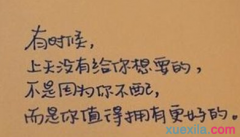 有时候，
上天没有给你想要的，
不是因为你不配，
而是你值得拥有更好的。
学习啦
xuexila.com